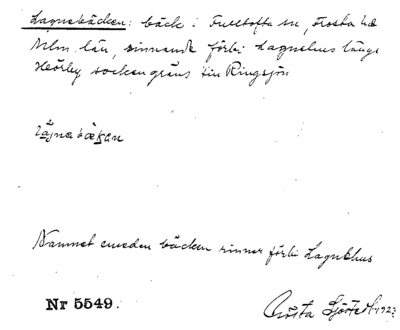 Lagnebäcken: bäck i Fulltofta sn, Frosta hd
Mlm. län, rinnande förbi Lagnehus längs
Hörby sockengräns till Ringsjön
Namnet emedan bäcken rinner förbi Lagnehus
Nr 5549.
Gösta Sjöstedt 1923